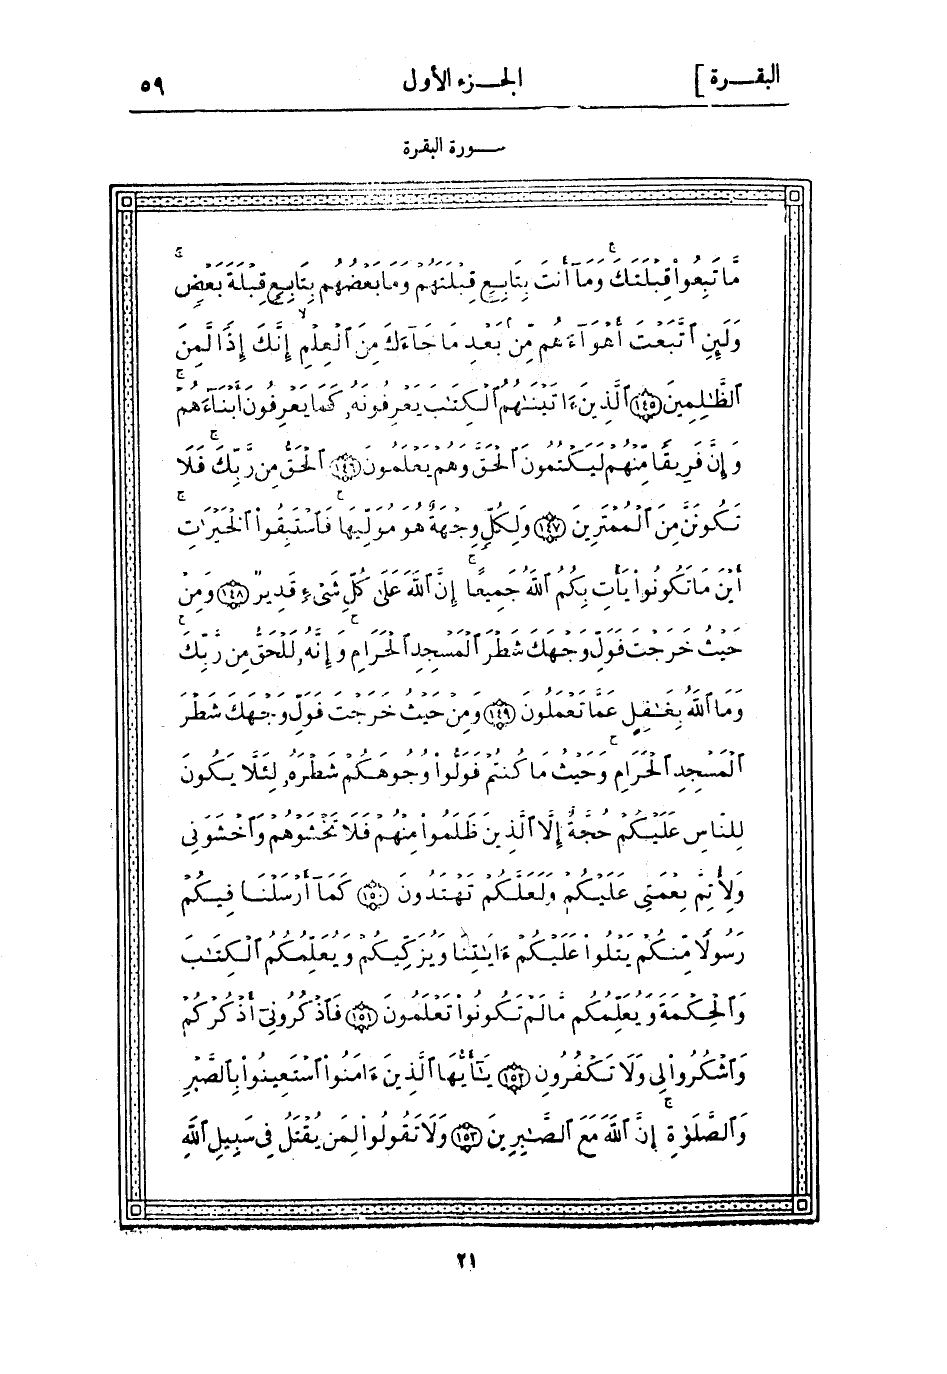 البقـــرة ]
الجـــزء الأول
٥٩
ســـورة البقرة
مَّا تَبِعُوا۟ قِبْلَتَكَ ۚ وَمَآ أَنتَ بِتَابِعٍ قِبْلَتَهُمْ ۚ وَمَا بَعْضُهُم بِتَابِعٍ قِبْلَةَ بَعْضٍ ۚ
وَلَئِنِ ٱتَّبَعْتَ أَهْوَآءَهُم مِّنۢ بَعْدِ مَا جَآءَكَ مِنَ ٱلْعِلْمِ ۙ إِنَّكَ إِذًا لَّمِنَ
ٱلظَّـٰلِمِينَ ﴿١٤٥﴾ ٱلَّذِينَ ءَاتَيْنَـٰهُمُ ٱلْكِتَـٰبَ يَعْرِفُونَهُۥ كَمَا يَعْرِفُونَ أَبْنَآءَهُمْ ۖ
وَإِنَّ فَرِيقًا مِّنْهُمْ لَيَكْتُمُونَ ٱلْحَقَّ وَهُمْ يَعْلَمُونَ ﴿١٤٦﴾ ٱلْحَقُّ مِن رَّبِّكَ ۖ فَلَا
تَكُونَنَّ مِنَ ٱلْمُمْتَرِينَ ﴿١٤٧﴾ وَلِكُلٍّ وِجْهَةٌ هُوَ مُوَلِّيهَا ۖ فَٱسْتَبِقُوا۟ ٱلْخَيْرَٰتِ ۚ
أَيْنَ مَا تَكُونُوا۟ يَأْتِ بِكُمُ ٱللَّهُ جَمِيعًا ۚ إِنَّ ٱللَّهَ عَلَىٰ كُلِّ شَىْءٍ قَدِيرٌ ﴿١٤٨﴾ وَمِنْ
حَيْثُ خَرَجْتَ فَوَلِّ وَجْهَكَ شَطْرَ ٱلْمَسْجِدِ ٱلْحَرَامِ ۖ وَإِنَّهُۥ لَلْحَقُّ مِن رَّبِّكَ ۗ
وَمَا ٱللَّهُ بِغَـٰفِلٍ عَمَّا تَعْمَلُونَ ﴿١٤٩﴾ وَمِنْ حَيْثُ خَرَجْتَ فَوَلِّ وَجْهَكَ شَطْرَ
ٱلْمَسْجِدِ ٱلْحَرَامِ ۚ وَحَيْثُ مَا كُنتُمْ فَوَلُّوا۟ وُجُوهَكُمْ شَطْرَهُۥ لِئَلَّا يَكُونَ
لِلنَّاسِ عَلَيْكُمْ حُجَّةٌ إِلَّا ٱلَّذِينَ ظَلَمُوا۟ مِنْهُمْ فَلَا تَخْشَوْهُمْ وَٱخْشَوْنِى
وَلِأُتِمَّ نِعْمَتِى عَلَيْكُمْ وَلَعَلَّكُمْ تَهْتَدُونَ ﴿١٥٠﴾ كَمَآ أَرْسَلْنَا فِيكُمْ
رَسُولًا مِّنكُمْ يَتْلُوا۟ عَلَيْكُمْ ءَايَـٰتِنَا وَيُزَكِّيكُمْ وَيُعَلِّمُكُمُ ٱلْكِتَـٰبَ
وَٱلْحِكْمَةَ وَيُعَلِّمُكُم مَّا لَمْ تَكُونُوا۟ تَعْلَمُونَ ﴿١٥١﴾ فَٱذْكُرُونِىٓ أَذْكُرْكُمْ
وَٱشْكُرُوا۟ لِى وَلَا تَكْفُرُونِ ﴿١٥٢﴾ يَـٰٓأَيُّهَا ٱلَّذِينَ ءَامَنُوا۟ ٱسْتَعِينُوا۟ بِٱلصَّبْرِ
وَٱلصَّلَوٰةِ ۚ إِنَّ ٱللَّهَ مَعَ ٱلصَّـٰبِرِينَ ﴿١٥٣﴾ وَلَا تَقُولُوا۟ لِمَن يُقْتَلُ فِى سَبِيلِ ٱللَّهِ
٢١